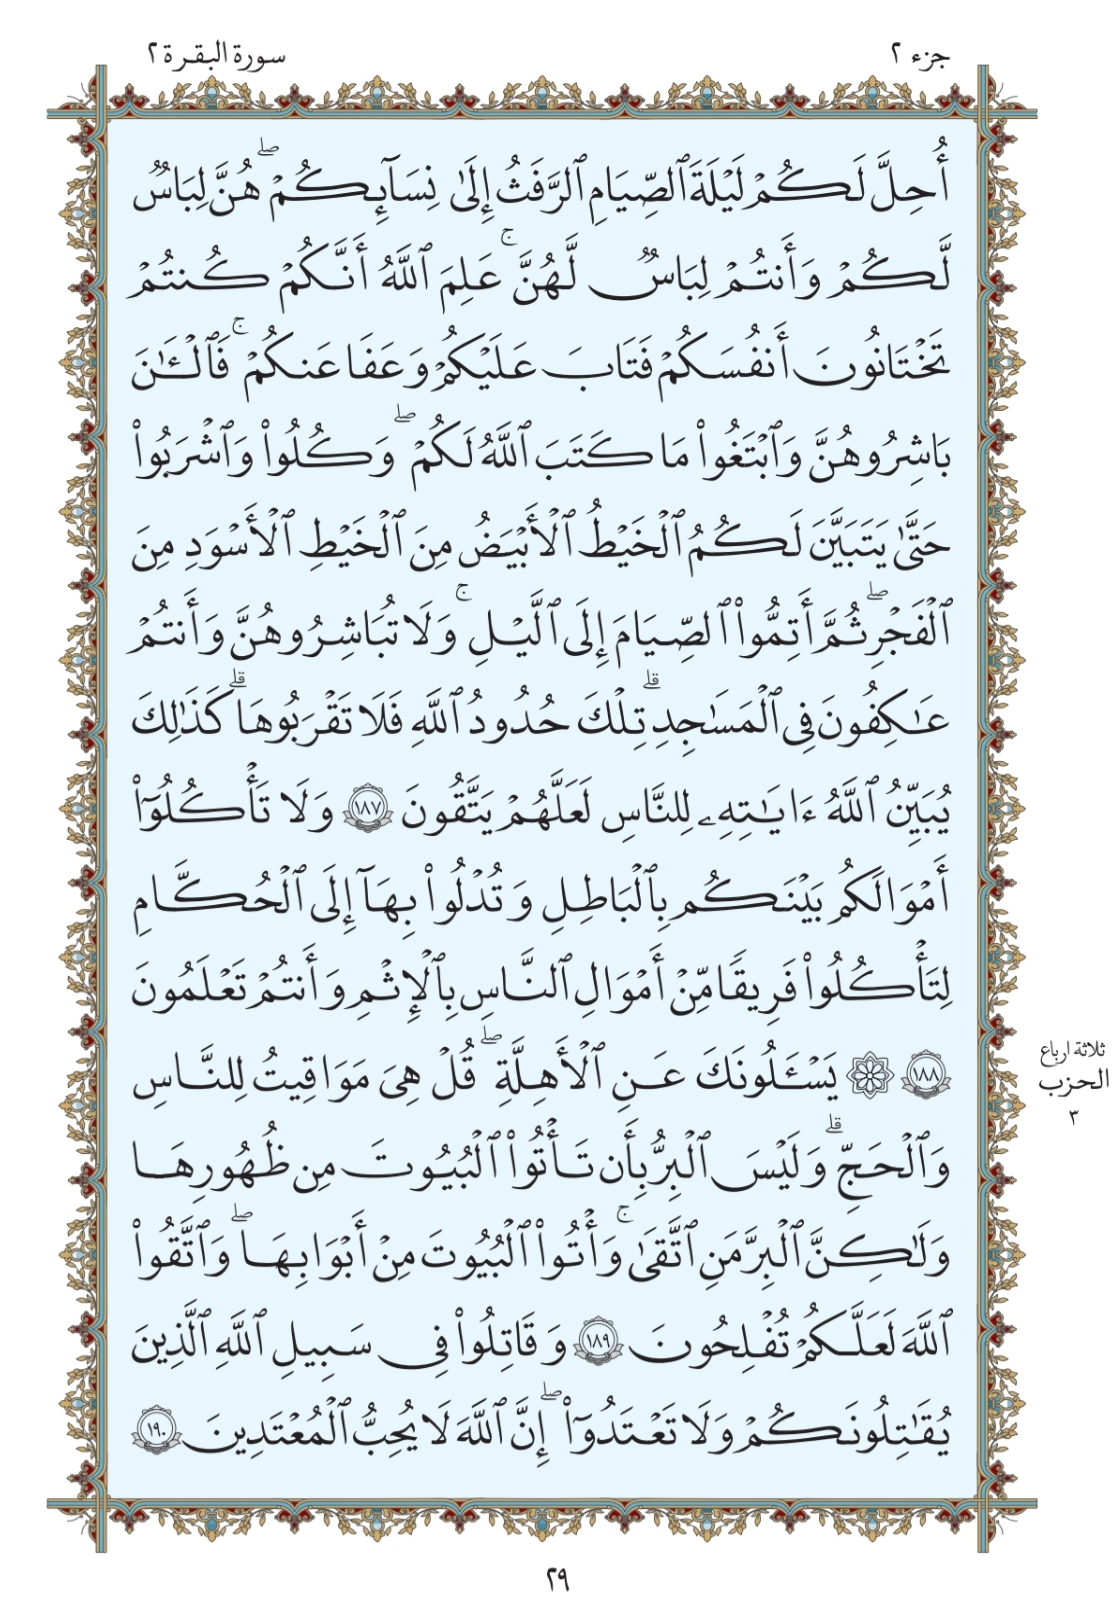 جزء ٢
سورة البقرة ٢
أُحِلَّ لَكُمْ لَيْلَةَ ٱلصِّيَامِ ٱلرَّفَثُ إِلَىٰ نِسَآئِكُمْ ۖ هُنَّ لِبَاسٌ
لَّكُمْ وَأَنتُمْ لِبَاسٌ لَّهُنَّ ۚ عَلِمَ ٱللَّهُ أَنَّكُمْ كُنتُمْ
تَخْتَانُونَ أَنفُسَكُمْ فَتَابَ عَلَيْكُمْ وَعَفَا عَنكُمْ ۚ فَٱلْـَٰٔنَ
بَاشِرُوهُنَّ وَٱبْتَغُوا۟ مَا كَتَبَ ٱللَّهُ لَكُمْ ۖ وَكُلُوا۟ وَٱشْرَبُوا۟
حَتَّىٰ يَتَبَيَّنَ لَكُمُ ٱلْخَيْطُ ٱلْأَبْيَضُ مِنَ ٱلْخَيْطِ ٱلْأَسْوَدِ مِنَ
ٱلْفَجْرِ ۖ ثُمَّ أَتِمُّوا۟ ٱلصِّيَامَ إِلَى ٱلَّيْلِ ۚ وَلَا تُبَاشِرُوهُنَّ وَأَنتُمْ
عَـٰكِفُونَ فِى ٱلْمَسَـٰجِدِ ۗ تِلْكَ حُدُودُ ٱللَّهِ فَلَا تَقْرَبُوهَا ۗ كَذَٰلِكَ
يُبَيِّنُ ٱللَّهُ ءَايَـٰتِهِۦ لِلنَّاسِ لَعَلَّهُمْ يَتَّقُونَ ١٨٧ وَلَا تَأْكُلُوٓا۟
أَمْوَالَكُم بَيْنَكُم بِٱلْبَاطِلِ وَتُدْلُوا۟ بِهَآ إِلَى ٱلْحُكَّامِ
لِتَأْكُلُوا۟ فَرِيقًا مِّنْ أَمْوَالِ ٱلنَّاسِ بِٱلْإِثْمِ وَأَنتُمْ تَعْلَمُونَ
١٨٨ ۞ يَسْـَٔلُونَكَ عَنِ ٱلْأَهِلَّةِ ۖ قُلْ هِىَ مَوَاقِيتُ لِلنَّاسِ
ثلاثة ارباع
الحزب
٣
وَٱلْحَجِّ ۗ وَلَيْسَ ٱلْبِرُّ بِأَن تَأْتُوا۟ ٱلْبُيُوتَ مِن ظُهُورِهَا
وَلَـٰكِنَّ ٱلْبِرَّ مَنِ ٱتَّقَىٰ ۚ وَأْتُوا۟ ٱلْبُيُوتَ مِنْ أَبْوَابِهَا ۖ وَٱتَّقُوا۟
ٱللَّهَ لَعَلَّكُمْ تُفْلِحُونَ ١٨٩ وَقَاتِلُوا۟ فِى سَبِيلِ ٱللَّهِ ٱلَّذِينَ
يُقَـٰتِلُونَكُمْ وَلَا تَعْتَدُوٓا۟ ۖ إِنَّ ٱللَّهَ لَا يُحِبُّ ٱلْمُعْتَدِينَ ١٩٠
٢٩